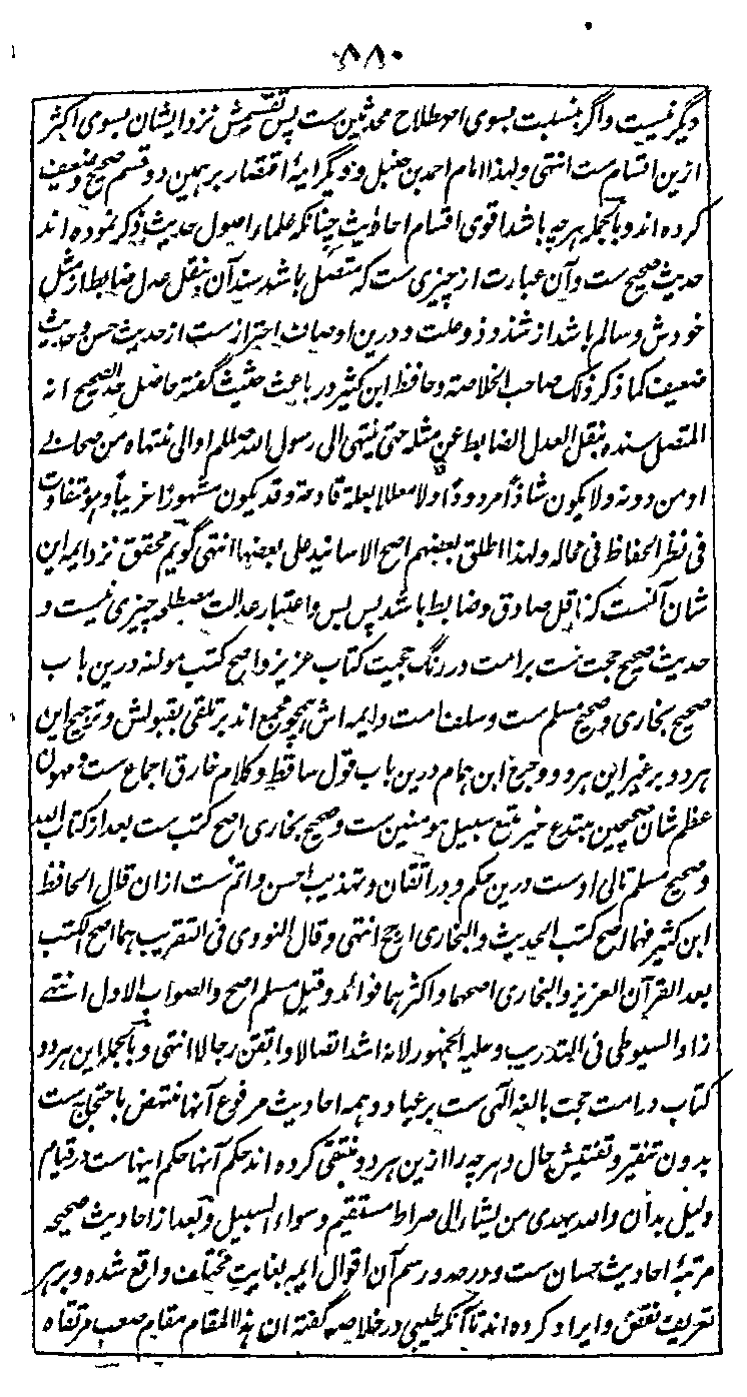 ۸۸۰
دیگر نیست و اگر بنسبت بسوی اصطلاح محدثین ست پس تقسیمش نزد ایشان بسوی اکثر
ازین اقسام ست انتهی و لهذا امام احمد بن حنبل و دیگر ایمهٔ اقتصار بر همین دو قسم صحیح و ضعیف
کرده اند و بالجمله هرچه باشد اقوی اقسام احادیث چنانکه علماء اصول حدیث ذکر نموده اند
حدیث صحیح ست و آن عبارت از چیزی ست که متصل باشد سند آن بنقل عدل ضابط از مثل
خودش و سالم باشد از شذوذ و علت و درین اوصاف احتراز ست از حدیث حسن و حدیث
ضعیف کما ذکر ذلک صاحب الخلاصة و حافظ ابن کثیر در باعث حثیث گفته حاصل حد الصحیح انه
المتصل سنده بنقل العدل الضابط عن مثله حتی ینتهی الی رسول الله صللم او الی منتهاه من صحابی
او من دونه و لا یکون شاذا مردودا و لا معللا بعلة قادحة و قد یکون مشهورا غریبا و هو متفاوت
فی نظر الحفاظ فی محاله و لهذا اطلق بعضهم اصح الاسانید علی بعضها انتهی گویم محقق نزد ایمه این
شان آنست که ناقل صادق و ضابط باشد پس بس و اعتبار عدالت مصطلحه چیزی نیست و
حدیث صحیح حجت ست بر امت در رنگ حجیت کتاب عزیز و اصح کتب مولفه درین باب
صحیح بخاری و صحیح مسلم ست و سلف امت و ایمه اش همچو مجمع اند بر تلقی بقبولش و ترجیح این
هر دو بر غیر این هر دو و وجیح ابن همام درین باب قول ساقط و کلام خارق اجماع ست و مهون
عظم شان صحیحین مبتدع غیر متبع سبیل مومنین ست و صحیح بخاری اصح کتب ست بعد از کتاب الله
و صحیح مسلم تالی اوست درین حکم و در اتقان و تهذیب احسن و اتم ست ازان قال الحافظ
ابن کثیر فهما اصح کتب الحدیث و البخاری ارجح انتهی و قال النووی فی التقریب هما اصح الکتب
بعد القرآن العزیز و البخاری اصحهما و اکثرهما فوائد و قیل مسلم اصح و الصواب الاول انتهی
زاد السیوطی فی التدریب و علیه الجمهور لانه اشد اتصالا و اتقن رجالا انتهی و بالجمله این هر دو
کتاب در امت حجت بالغه الهی ست بر عباد و همه احادیث مرفوع آنها منتهض باحتجاج ست
بدون تنقیر و تفتیش حال و هرچه را ازین هر دو منتقی کرده اند حکم آنها حکم اینهاست در قیام
دلیل بدان و الله یهدی من یشاء الی صراط مستقیم و سواء السبیل و بعد از احادیث صحیحه
مرتبهٔ احادیث حسان ست و در حد و رسم آن اقوال ایمه بغایت مختلف واقع شده و بر هر
تعریف نقض و ایراد کرده اند تا آنکه طیبی در خلاصه گفته ان هذا المقام مقام صعب مرتقاه